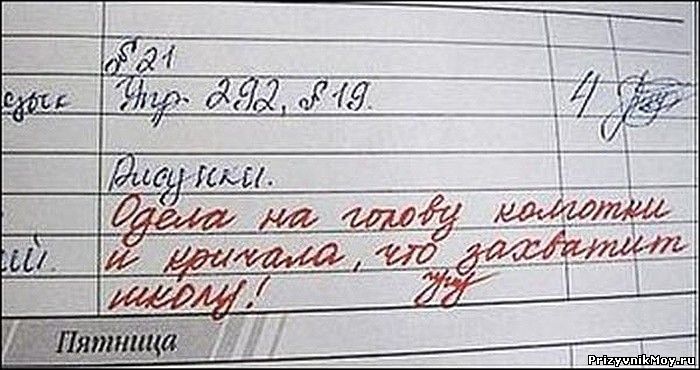 № 21
язык Упр. 292, §19. 4
Рисунки.
Одела на голову колготки
ий. и кричала, что захватит
школу!
Пятница
PrizyvnikMoy.ru